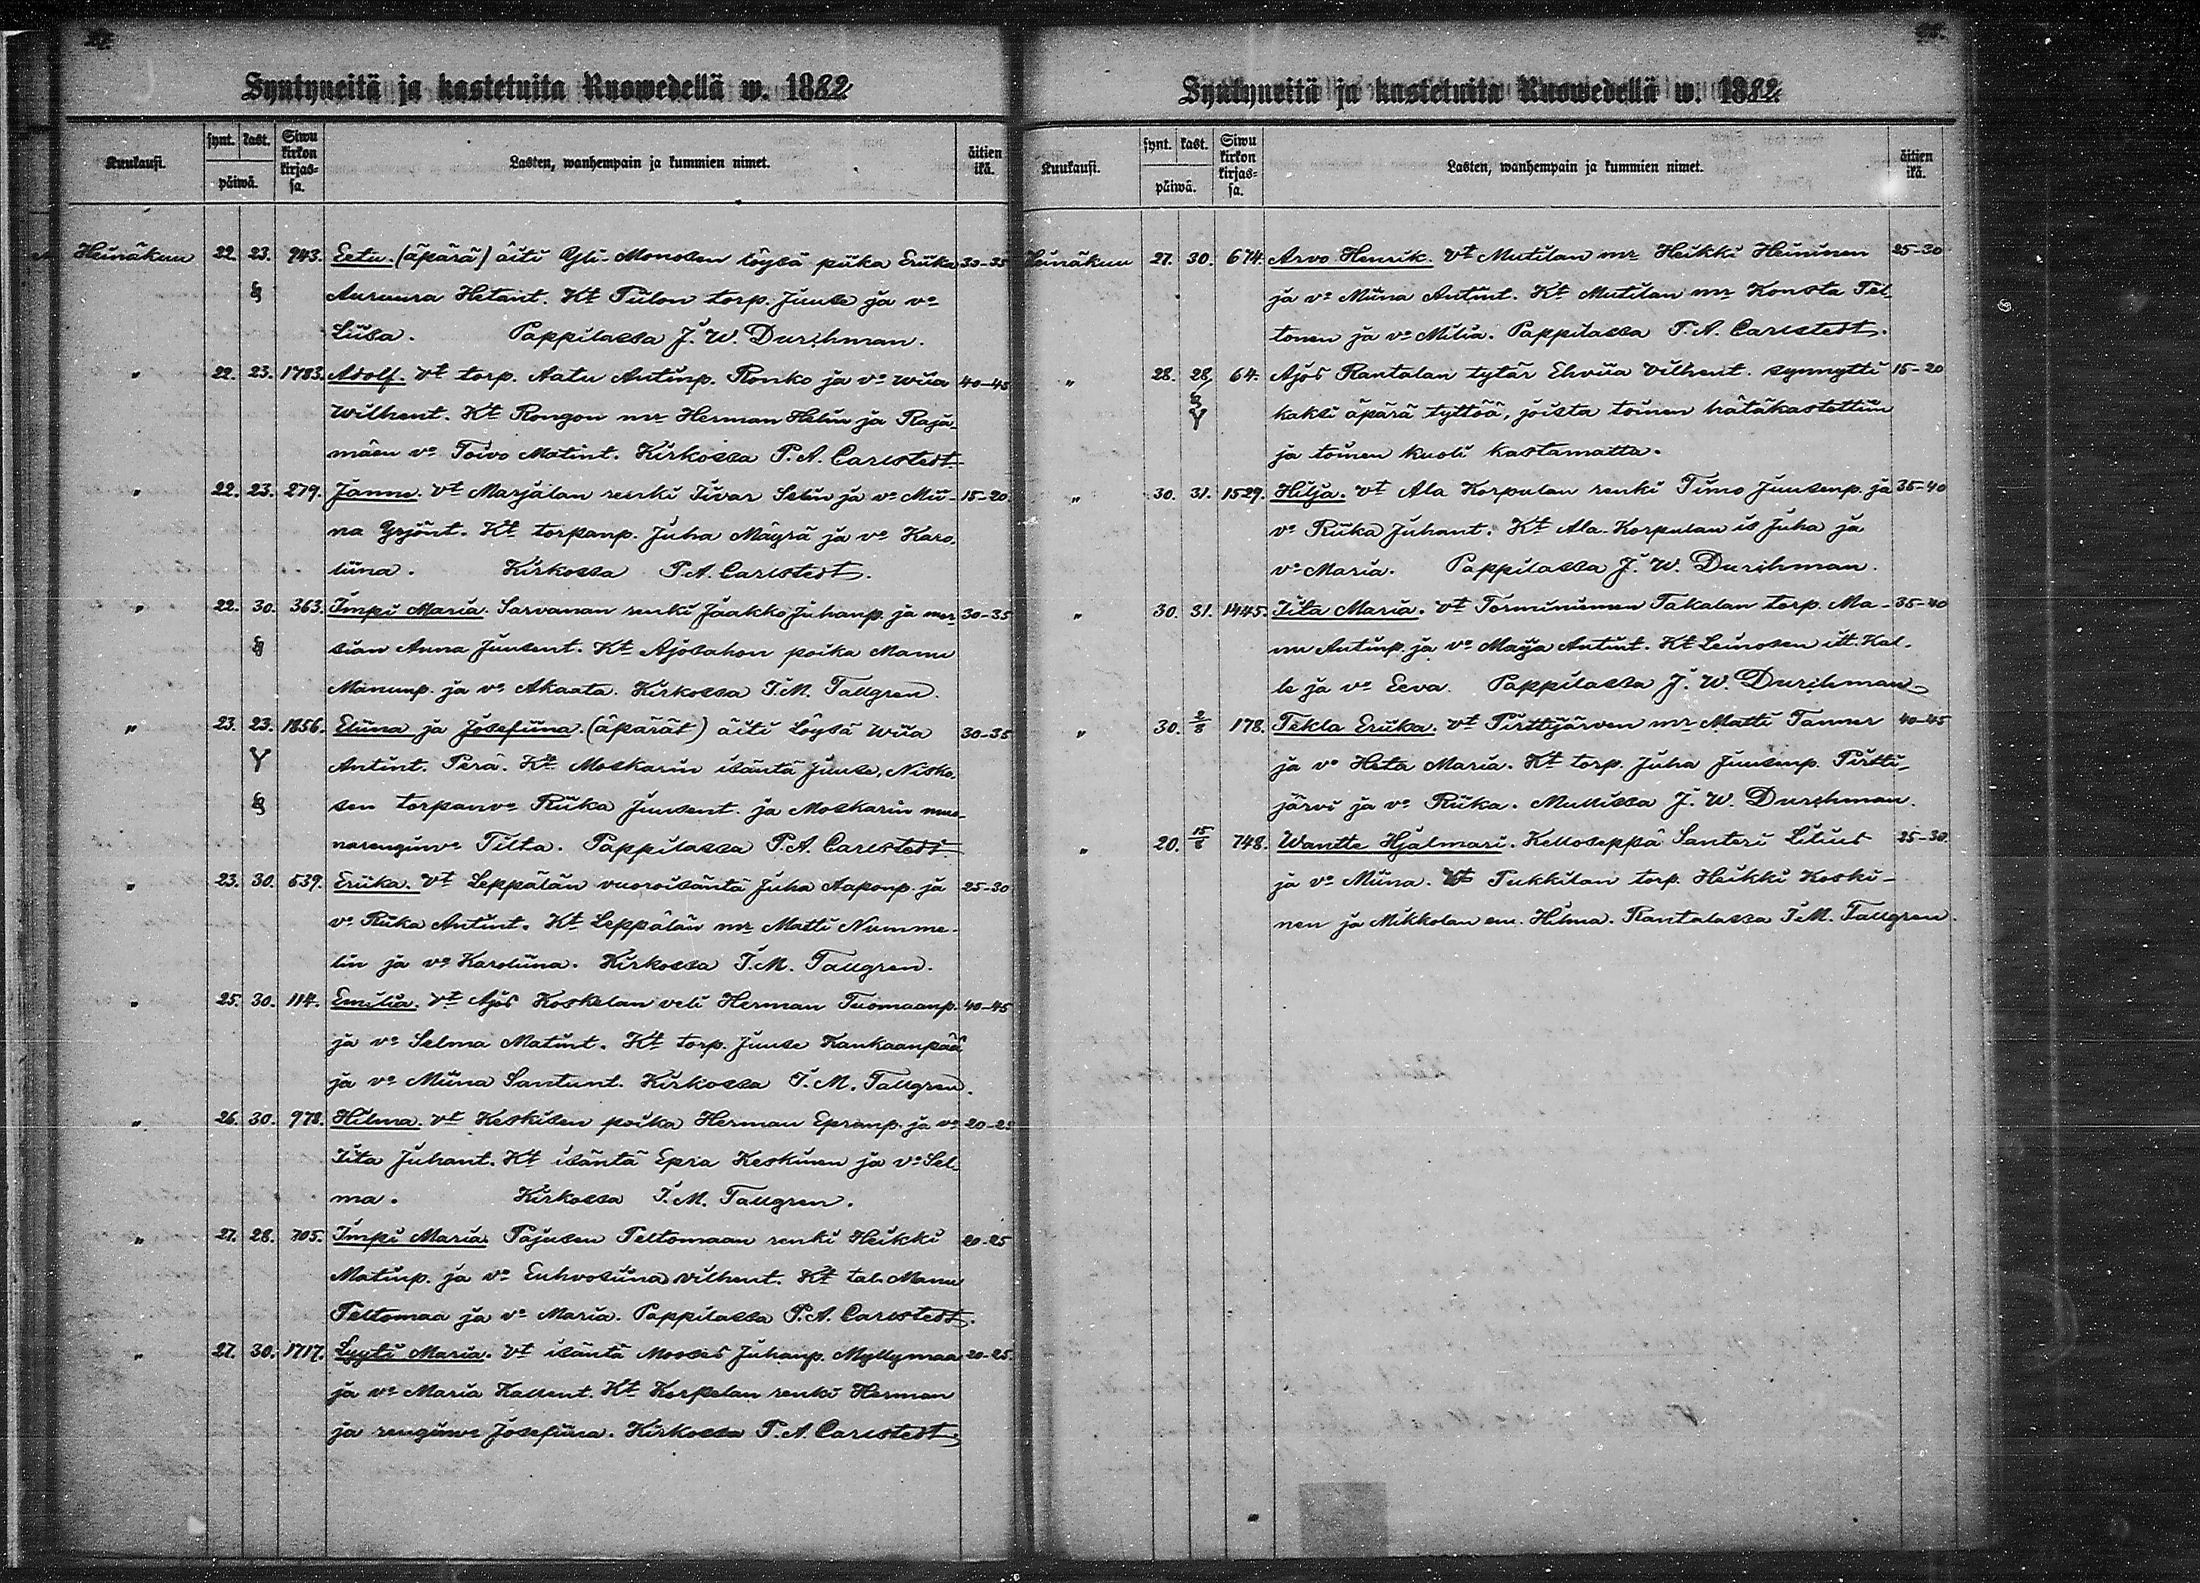 Syntyneitä ja kastetuita Ruowedellä w. 1882
Kuukausi. synt. kast. päiwä. Siwu kirkon kirjas=sa. Lasten, wanhempain ja kummien nimet. äitien ikä.
Heinäkuu 22. 23. 943. Eetu. (äpärä) äiti Yli-Monosen löysä piika Eriika 30-35
Auruura Hetant. Kt Piilon torp. Juuse ja vo
Liisa. Pappilassa J. W. Durchman.
" 22. 23. 1783. Adolf. Vt torp. Aatu Antinp. Ronko ja vo Wiia 40-45
Wilhent. Kt Rongon mr Herman Helin ja Raja-
mäen vo Toivo Matint. Kirkossa P. A. Carlstedt
" 22. 23. 279. Janne. Vt Marjalan renki Iivar Selin ja vo Mii- 15-20.
na Yrjönt. Kt torpanp. Juha Mäyrä ja vo Karo-
liina. Kirkossa P. A. Carlstedt.
" 22. 30. 363. Impi Maria. Sarvanan renki Jaakko Juhanp. ja mor- 30-35
sian Anna Juusent. Kt Ajosahon poika Manu
Manunp. ja vo Akaata. Kirkossa I. M. Tallgren.
" 23. 23. 1856. Eliina ja Josefiina. (äpärät) äiti Löysä Wiia 30-35
Antint. Perä. Kt Moskarin isäntä Juuse, Nisko-
sen torpanvo Riika Juusent. ja Moskarin muo-
narenginvo Tilta. Pappilassa P. A. Carlstedt.
" 23. 30. 539. Eriika. Vt Leppälän vuoroisäntä Juha Aaponp. ja 25-30
vo Riika Antint. Kt Leppälän mr Matti Numme-
lin ja vo Karoliina. Kirkossa I. M. Tallgren.
" 25. 30. 114. Emilia. Vt Ajos Koskelan veli Herman Tuomaanp. 40-45
ja vo Selma Matint. Kt torp. Juuse Kankaanpää
ja vo Miina Santunt. Kirkossa I. M. Tallgren.
" 26. 30. 978. Hilma. Vt Keskisen poika Herman Epranp. ja vo 20-25
Iita Juhant. Kt isäntä Epra Keskinen ja vo Sel-
ma. Kirkossa I. M. Tallgren.
" 27. 28. 705. Impi Maria. Pajusen Peltomaan renki Heikki 20-25
Matinp. ja vo Euhvosiina Vilhent. Kt tal. Manu
Peltomaa ja vo Maria. Pappilassa P. A. Carlstedt.
" 27. 30. 1717. Lyyti Maria. Vt isäntä Mooses Juhanp. Myllymaa 20-25.
ja vo Maria Kallent. Kt Korpelan renki Herman
ja renginvo Josefiina. Kirkossa P. A. Carlstedt.
Syntyneitä ja kastetuita Ruowedellä w. 1882.
Kuukausi. synt. kast. päiwä. Siwu kirkon kirjas=sa. Lasten, wanhempain ja kummien nimet. äitien ikä.
Heinäkuu 27. 30. 674. Arvo Henrik. Vt Mutilan mr Heikki Heininen 25-30
ja vo Miina Antint. Kt Mutilan mr Konsta Pel-
tonen ja vo Milia. Pappilassa P. A. Carlstedt.
" 28. 28 64. Ajos Rantalan tytär Ehviia Vilhent. synnytti 15-20
kaksi äpärä tyttöä, joista toinen hätäkastettiin
ja toinen kuoli kastamatta.
" 30. 31. 1529. Hilja. Vt Ala Korpulan renki Timo Juusenp. ja 35-40
vo Riika Juhant. Kt Ala-Korpulan is Juha ja
vo Maria. Pappilassa J. W. Durchman.
" 30. 31. 1445. Iita Maria. Vt Torminiemen Takalan torp. Ma- 35-40
nu Antinp. ja vo Maija Antint. Kt Leinosen itt. Kal-
le ja vo Eeva. Pappilassa J. W. Durchman
" 30. 2/8 178. Tekla Eriika. Vt Pirttijärven mr Matti Tanner 40-45
ja vo Heta Maria. Kt torp. Juha Juusenp. Pirtti-
järvi ja vo Riika. Mullissa J. W. Durchman.
" 20. 15/8 748. Wantte Hjalmari. Kelloseppä Santeri Lilius 25-30.
ja vo Miina. Kt Pukkilan torp. Heikki Koski-
nen ja Mikkolan em. Hilma. Rantalassa I. M. Tallgren.